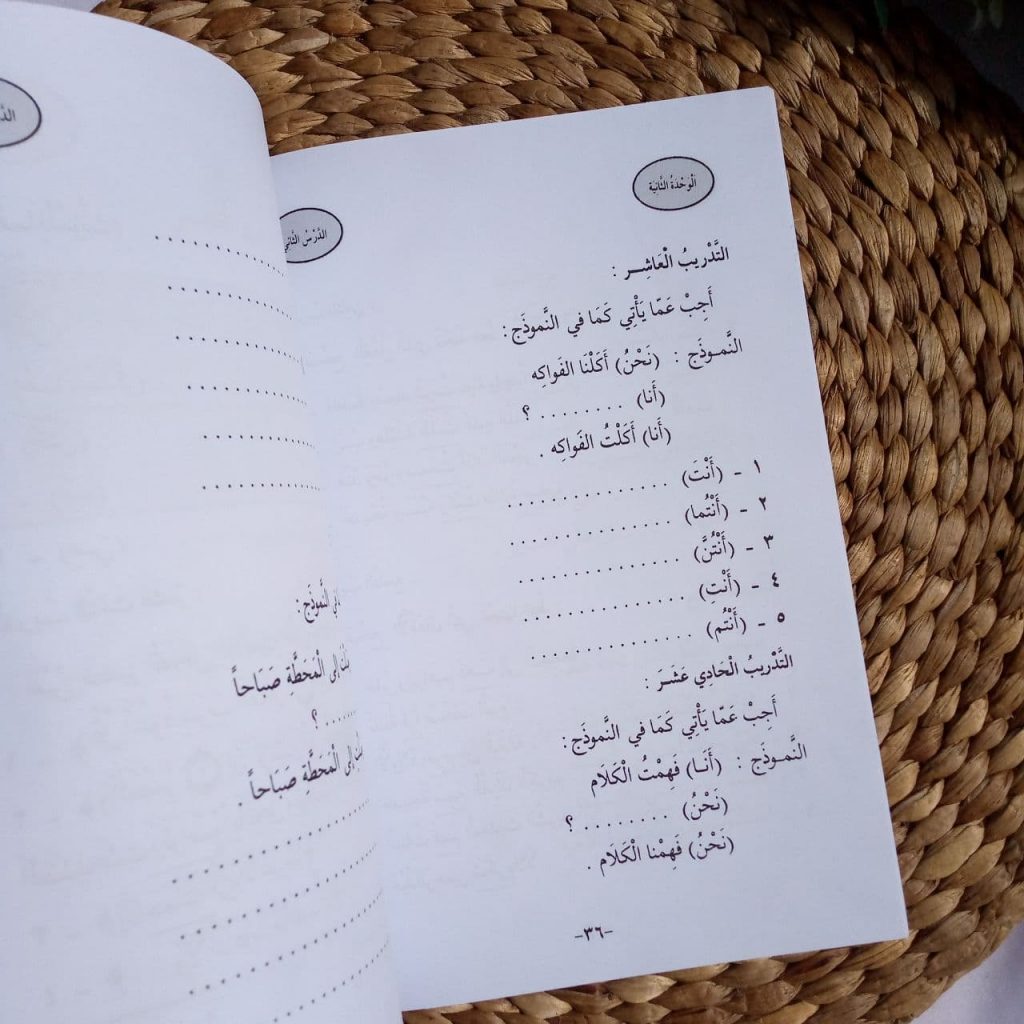 الْوَحْدَةُ الثَّانِيَة
الدَّرْسُ الثَّاني
التَّدْرِيبُ الْعَاشِــر :
أَجِبْ عَمّا يَأْتِي كَمَا في النَّموذَج:
النَّمـوذَج : (نَحْنُ) أَكَلْنَا الفَواكِه
(أَنا) . . . . . . . . ؟
(أَنا) أَكَلْتُ الفَواكِه .
١ - (أَنْتَ) . . . . . . . . . . . . . .
٢ - (أَنْتُما) . . . . . . . . . . . . . .
٣ - (أَنْتُنَّ) . . . . . . . . . . . . . .
٤ - (أَنْتِ) . . . . . . . . . . . . . .
٥ - (أَنْتُم) . . . . . . . . . . . . . .
التَّدْرِيبُ الْحَادِي عَشَـرَ :
أَجِبْ عَمّا يَأْتِي كَمَا في النَّموذَج:
النَّمـوذَج : (أَنَـا) فَهِمْتُ الْكَلَام
(نَحْنُ) . . . . . . . . ؟
(نَحْنُ) فَهِمْنا الْكَلَام .
-٣٦-
النَّموذَج:
إِلى الْمَحَطَّةِ صَبَاحاً
. . . . . ؟
إِلى الْمَحَطَّةِ صَبَاحاً .